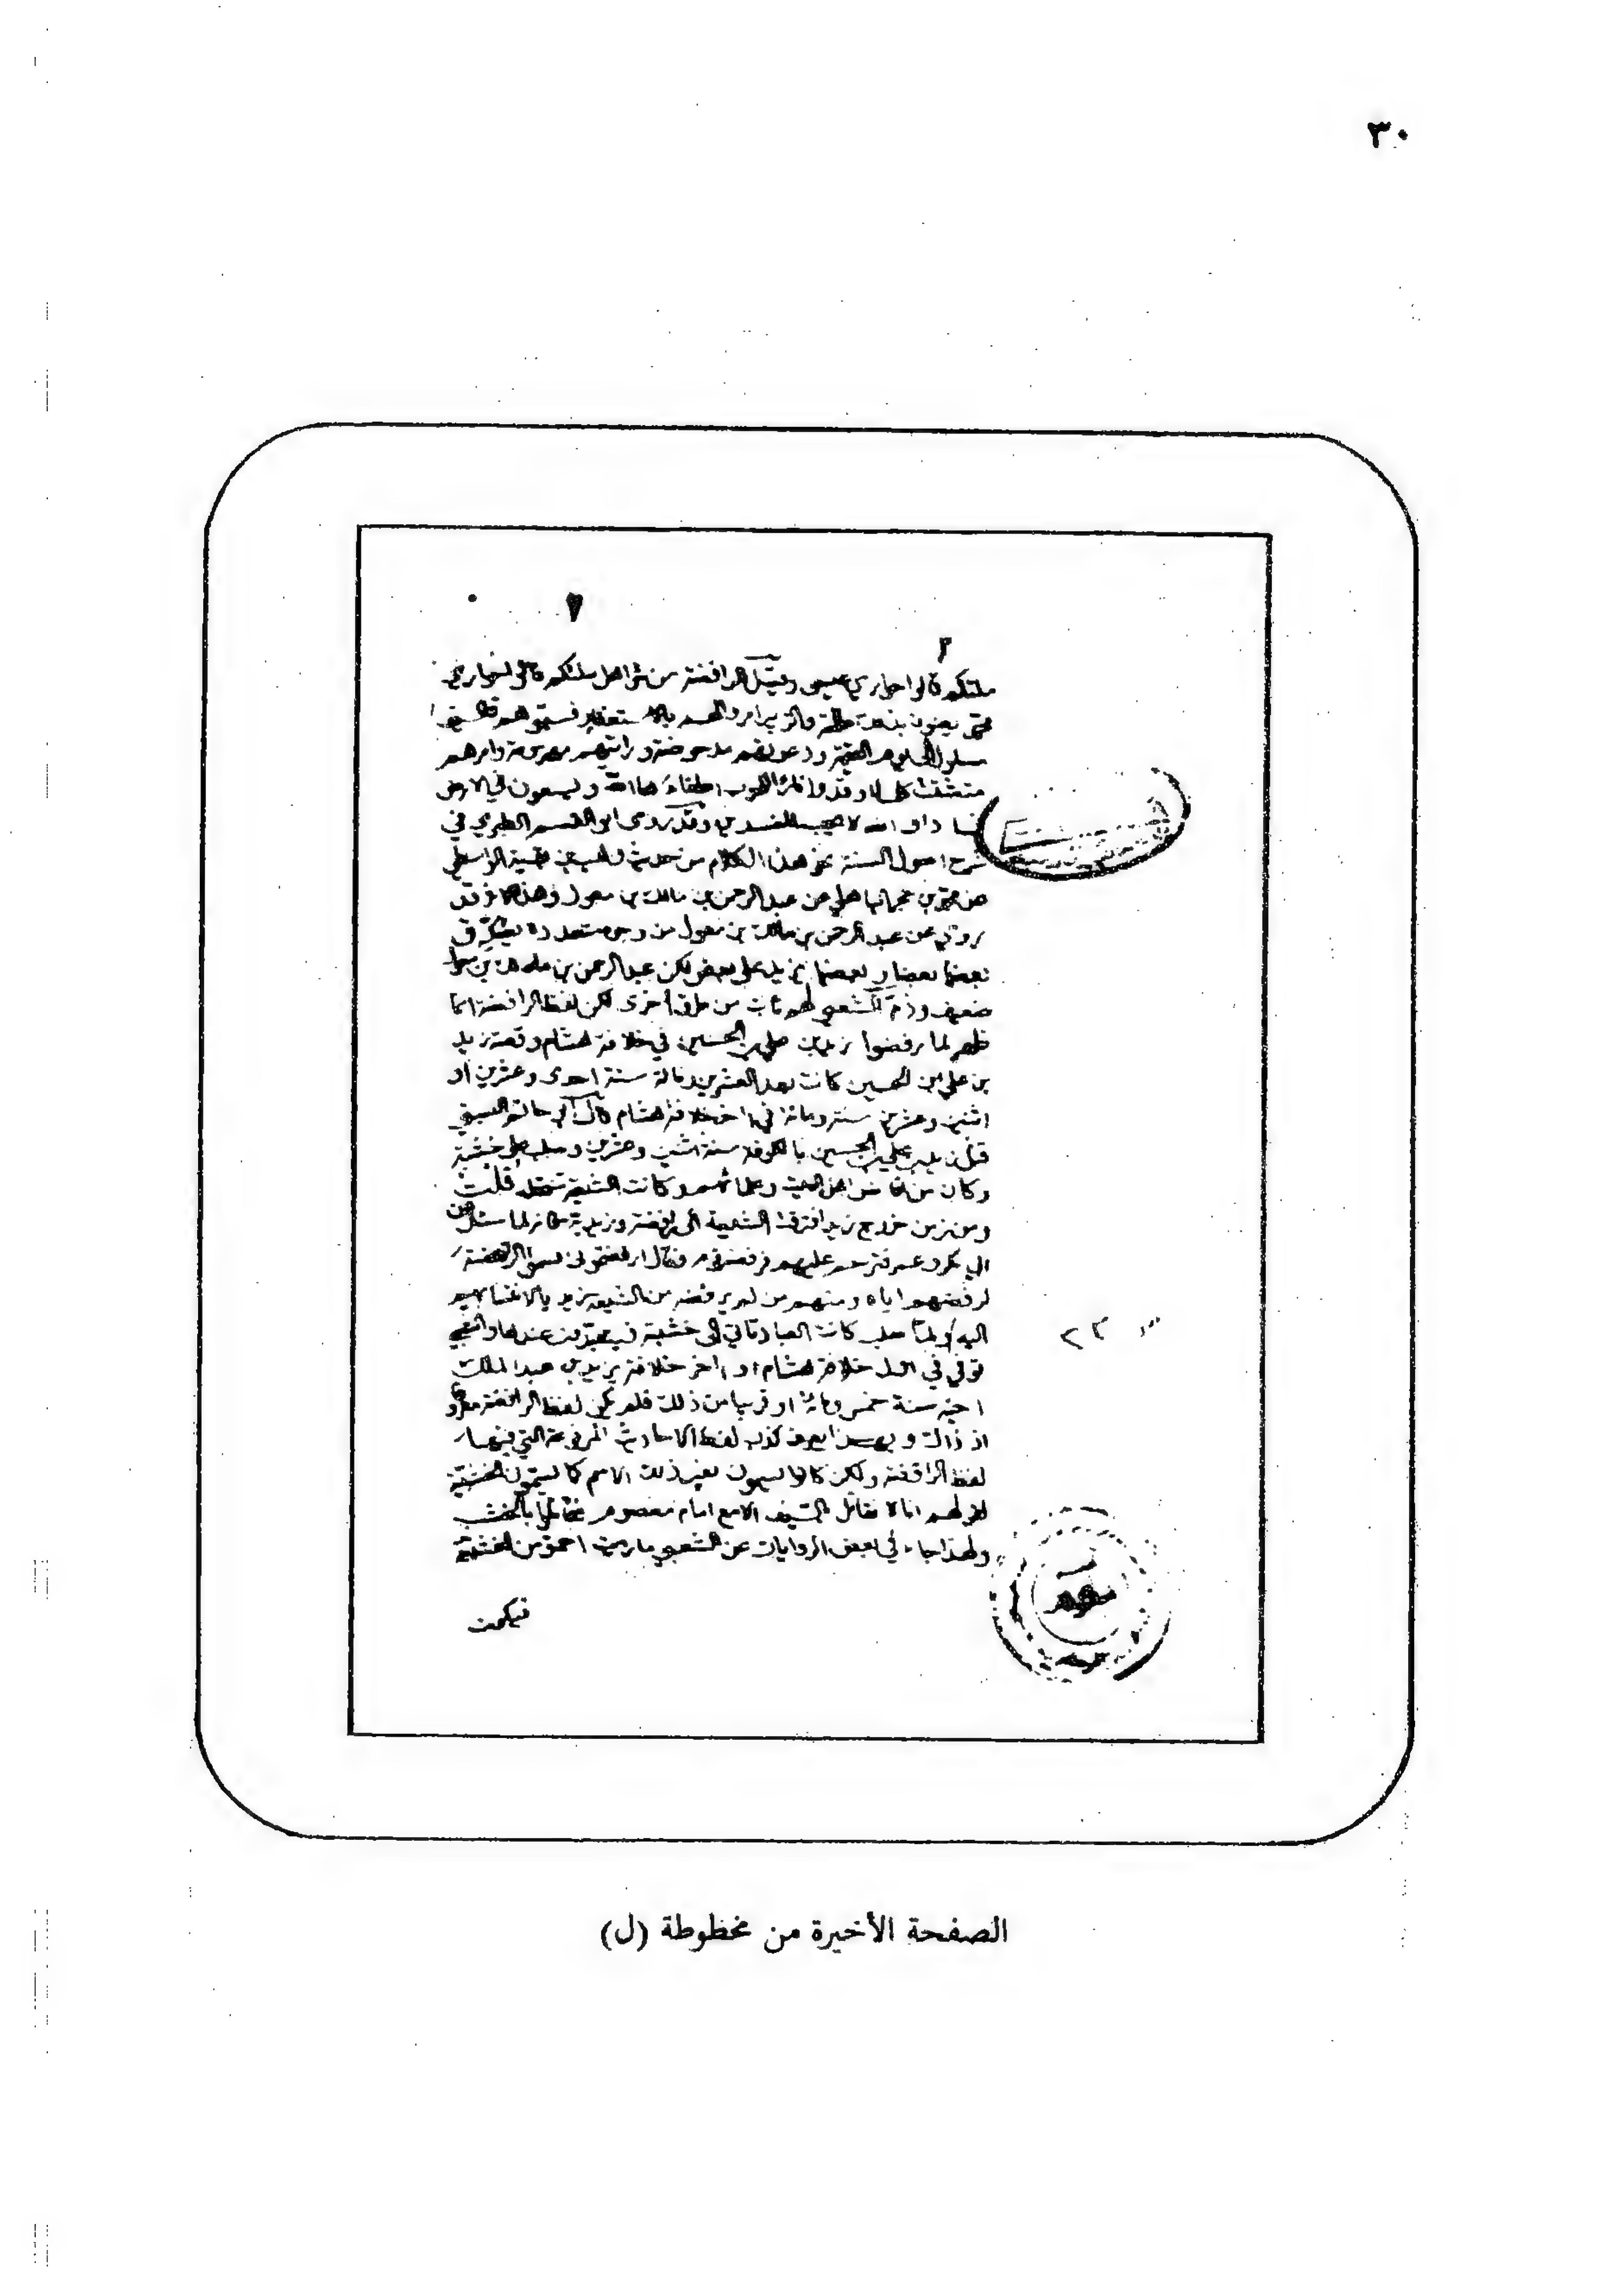 ٣٠
ملتكم قالوا حواري عيسى وقيل للرافضة من شر اهل ملتكم قالوا حواري
محمد يعنون بذلك طلحة والزبير امروا لهم بالاستغفار فسبوهم فالسيف
مسلول الى يوم القيمة ودعوتهم مدحوضة ورايتهم مهزومة وامرهم
متشتت كلما اوقدوا نارا للحرب اطفاءها الله ويسعون في الارض
فسادا والله لا يحب المفسدين وقد روى ابو القسم الطبري في
شرح اصول السنة نحو هذا الكلام من حديث وهب بن بقية الواسطي
عن محمد بن حجر الباهلي عن عبد الرحمن بن مالك بن مغول وهذا
روي عن عبد الرحمن بن مالك بن مغول من وجوه متعددة يصدق
بعضها بعضا وبعضها يزيد على بعض لكن عبد الرحمن بن مالك بن مغول
ضعيف وذم الشعبي لهم ثابت من طرق اخرى لكن لفظ الرافضة انما
ظهر لما رفضوا زيد بن علي بن الحسين في خلافة هشام وقصة زيد
بن علي بن الحسين كانت بعد العشرين ومائة سنة احدى وعشرين او
اثنين وعشرين سنة ومائة في اخر خلافة هشام قال ابو حاتم البستي
قتل زيد بن علي بن الحسين بالكوفة سنة اثنين وعشرين وصلب على خشبة
وكان من افاضل اهل البيت وعلمائهم وكانت الشيعة تنتحله قلت
ومن زمن خروج زيد افترقت الشيعة الى رافضة وزيدية فانه لما سئل عن
ابي بكر وعمر فترحم عليهما رفضه قوم فقال لهم رفضتموني فسموا الرافضة
لرفضهم اياه ومنهم من لم يرفضه من الشيعة زيديا لانتسابهم
اليه ولما صلب كانت العباد تاتي الى خشبته فيتعبدون عندها والشعبي
توفي في اول خلافة هشام او اخر خلافة يزيد بن عبد الملك
اخيه سنة خمس ومائة او قريبا من ذلك فلم يكن لفظ الرافضة معروفا
اذ ذاك وبهذا يعرف كذب لفظ الاحاديث المرفوعة التي فيها
لفظ الرافضة ولكن كانوا يسمون بغير ذلك الاسم كما يسمون الخشبية
لقولهم انا لا نقاتل بالسيف الا مع امام معصوم فقاتلوا بالخشب
ولهذا جاء في بعض الروايات عن الشعبي ما رايت احمق من الخشبية
فيكون
الصفحة الأخيرة من مخطوطة (ل)